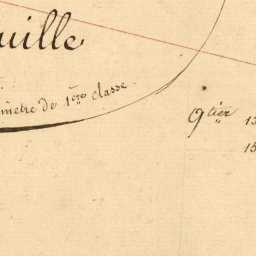 uille
mètre de 1ère classe.
9tier 15
15